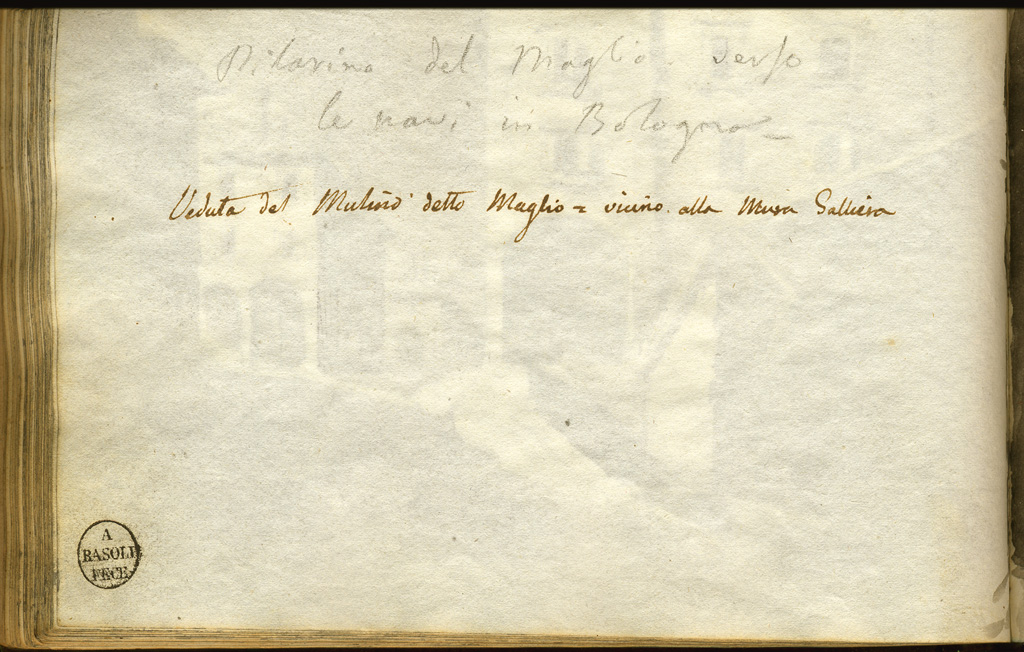 Pilarino del Maglio verso
le navi in Bologna
Veduta del Mulino detto Maglio = vicino alla Mura Galliera
A
BASOLI
FECE